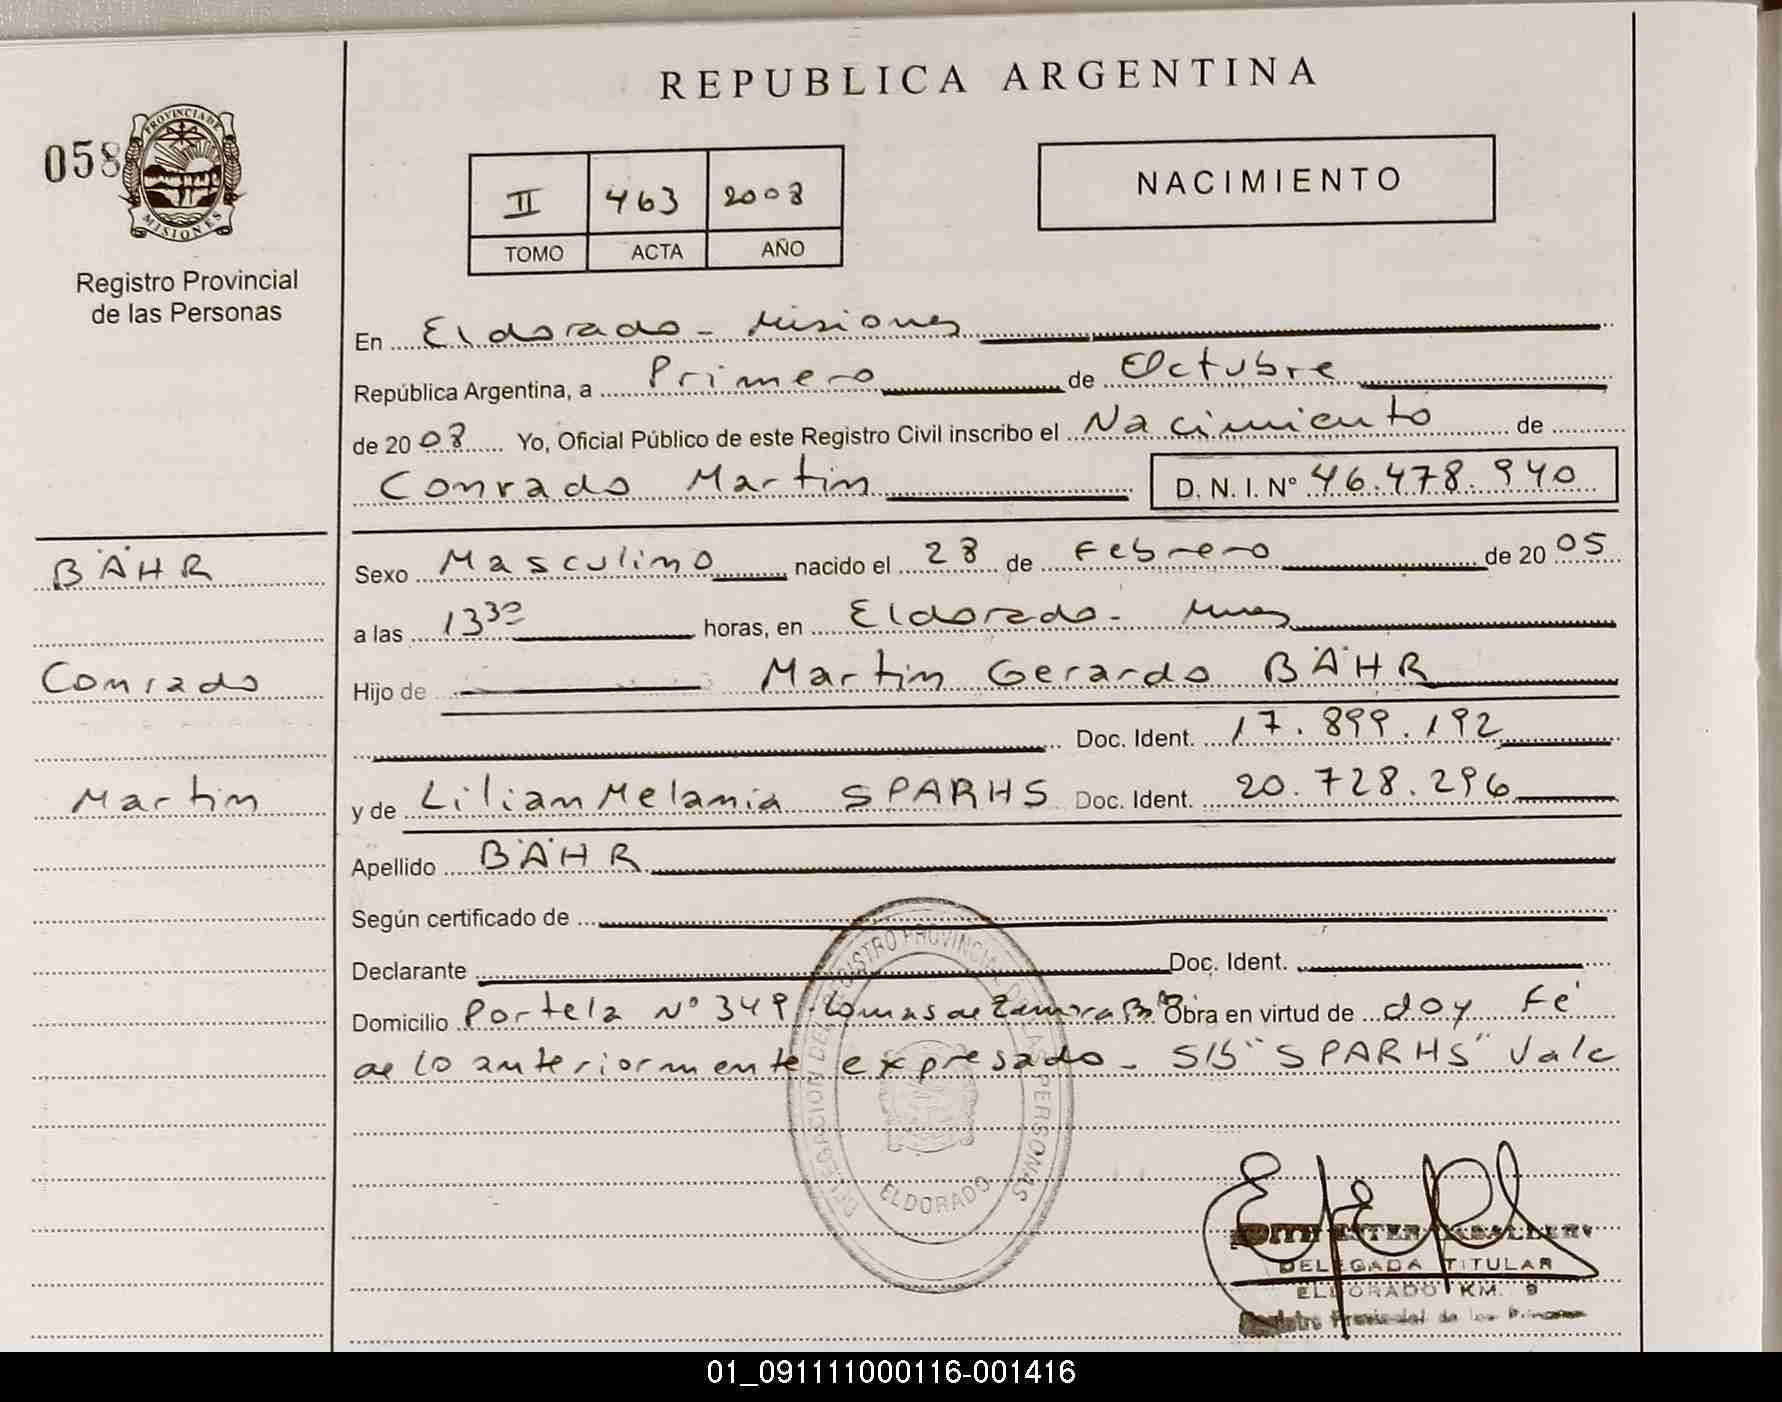 REPUBLICA ARGENTINA
058
PROVINCIA DE
MISIONES
Registro Provincial
de las Personas
II 463 2008
TOMO ACTA AÑO
NACIMIENTO
En Eldorado - Misiones
República Argentina, a Primero de Octubre
de 2008 Yo, Oficial Público de este Registro Civil inscribo el Nacimiento de
Conrado Martin D.N.I. Nº 46.478.940
BÄHR
Conrado
Martin
Sexo Masculino nacido el 28 de Febrero de 2005
a las 13 30 horas, en Eldorado - Mnes
Hijo de Martin Gerardo BÄHR
Doc. Ident. 17.899.192
y de Lilian Melania SPARHS Doc. Ident. 20.728.296
Apellido BÄHR
Según certificado de
Declarante Doc. Ident.
Domicilio Portela Nº 349 Lomas de Zamora Bs Obra en virtud de doy Fé
de lo anteriormente expresado - S/B "SPARHS" Vale
DELEGACION DEL REGISTRO PROVINCIAL DE LAS PERSONAS
ELDORADO
EDITH ESTER CABALLERO
DELEGADA TITULAR
ELDORADO KM. 9
Registro Provincial de las Personas
01_091111000116-001416